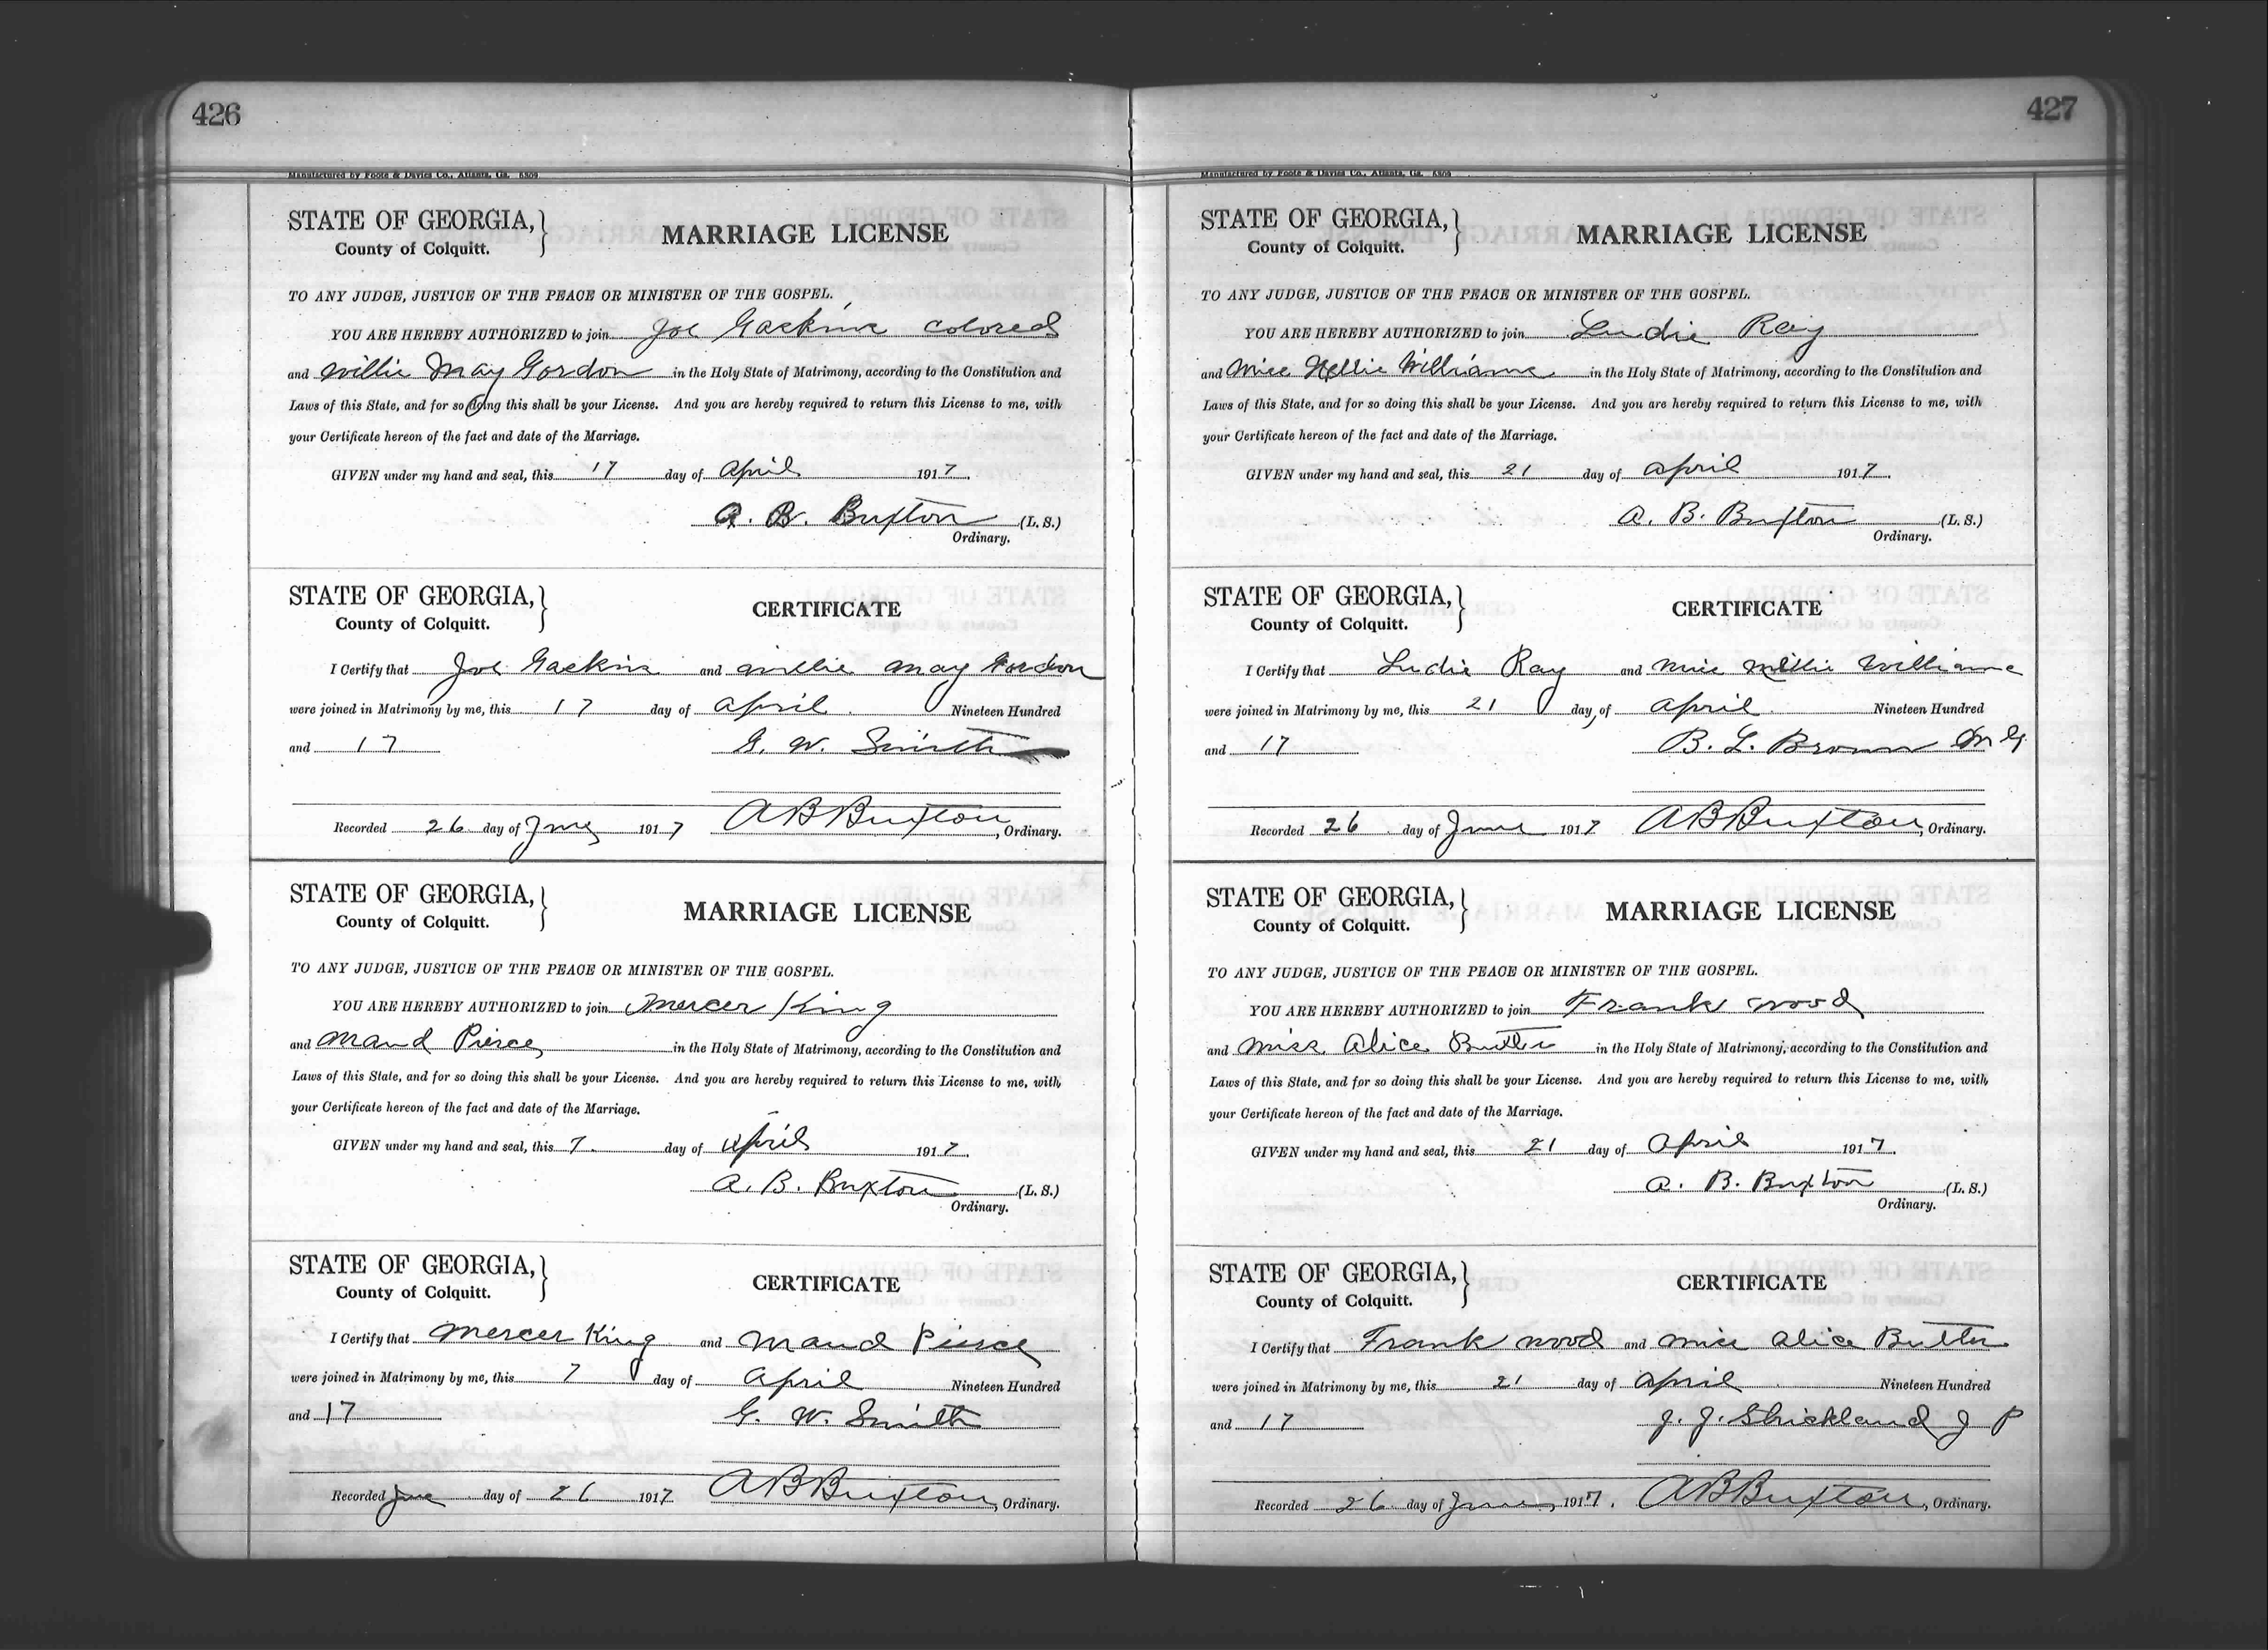 426
Manufactured by Foote & Davies Co., Atlanta, Ga. 6809
STATE OF GEORGIA,
County of Colquitt.
MARRIAGE LICENSE
TO ANY JUDGE, JUSTICE OF THE PEACE OR MINISTER OF THE GOSPEL.
YOU ARE HEREBY AUTHORIZED to join Joe Gaskins colored
and Willie May Gordon in the Holy State of Matrimony, according to the Constitution and
Laws of this State, and for so doing this shall be your License. And you are hereby required to return this License to me, with
your Certificate hereon of the fact and date of the Marriage.
GIVEN under my hand and seal, this 17 day of April 1917.
A. B. Buxton (L. S.)
Ordinary.
STATE OF GEORGIA,
County of Colquitt.
CERTIFICATE
I Certify that Joe Gaskins and Willie May Gordon
were joined in Matrimony by me, this 17 day of April Nineteen Hundred
and 17 G. W. Smith
Recorded 26 day of June 1917 A B Buxton, Ordinary.
STATE OF GEORGIA,
County of Colquitt.
MARRIAGE LICENSE
TO ANY JUDGE, JUSTICE OF THE PEACE OR MINISTER OF THE GOSPEL.
YOU ARE HEREBY AUTHORIZED to join Mercer King
and Maud Pierce in the Holy State of Matrimony, according to the Constitution and
Laws of this State, and for so doing this shall be your License. And you are hereby required to return this License to me, with
your Certificate hereon of the fact and date of the Marriage.
GIVEN under my hand and seal, this 7 day of April 1917.
A. B. Buxton (L. S.)
Ordinary.
STATE OF GEORGIA,
County of Colquitt.
CERTIFICATE
I Certify that Mercer King and Maud Pierce
were joined in Matrimony by me, this 7 day of April Nineteen Hundred
and 17 G. W. Smith
Recorded June day of 26 1917 A B Buxton, Ordinary.
427
Manufactured by Foote & Davies Co., Atlanta, Ga. 6809
STATE OF GEORGIA,
County of Colquitt.
MARRIAGE LICENSE
TO ANY JUDGE, JUSTICE OF THE PEACE OR MINISTER OF THE GOSPEL.
YOU ARE HEREBY AUTHORIZED to join Ludie Ray
and Miss Nellie Williams in the Holy State of Matrimony, according to the Constitution and
Laws of this State, and for so doing this shall be your License. And you are hereby required to return this License to me, with
your Certificate hereon of the fact and date of the Marriage.
GIVEN under my hand and seal, this 21 day of April 1917.
A. B. Buxton (L. S.)
Ordinary.
STATE OF GEORGIA,
County of Colquitt.
CERTIFICATE
I Certify that Ludie Ray and Miss Williams
were joined in Matrimony by me, this 21 day of April Nineteen Hundred
and 17 B. L. Brown M G
Recorded 26 day of June 1917 A B Buxton, Ordinary.
STATE OF GEORGIA,
County of Colquitt.
MARRIAGE LICENSE
TO ANY JUDGE, JUSTICE OF THE PEACE OR MINISTER OF THE GOSPEL.
YOU ARE HEREBY AUTHORIZED to join Frank Wood
and Miss Alice Butler in the Holy State of Matrimony, according to the Constitution and
Laws of this State, and for so doing this shall be your License. And you are hereby required to return this License to me, with
your Certificate hereon of the fact and date of the Marriage.
GIVEN under my hand and seal, this 21 day of April 1917.
A. B. Buxton (L. S.)
Ordinary.
STATE OF GEORGIA,
County of Colquitt.
CERTIFICATE
I Certify that Frank Wood and Miss Alice Butler
were joined in Matrimony by me, this 21 day of April Nineteen Hundred
and 17 J. J. Strickland J P
Recorded 26 day of June 1917. A B Buxton, Ordinary.